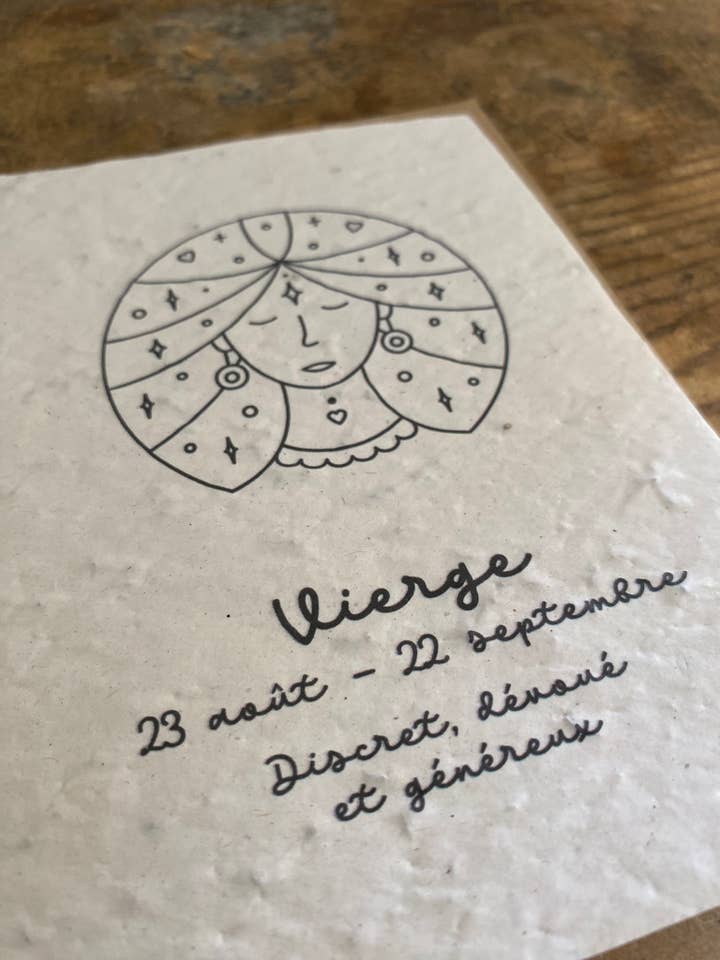 Vierge
23 août - 22 septembre
Discret, dévoué
et généreux